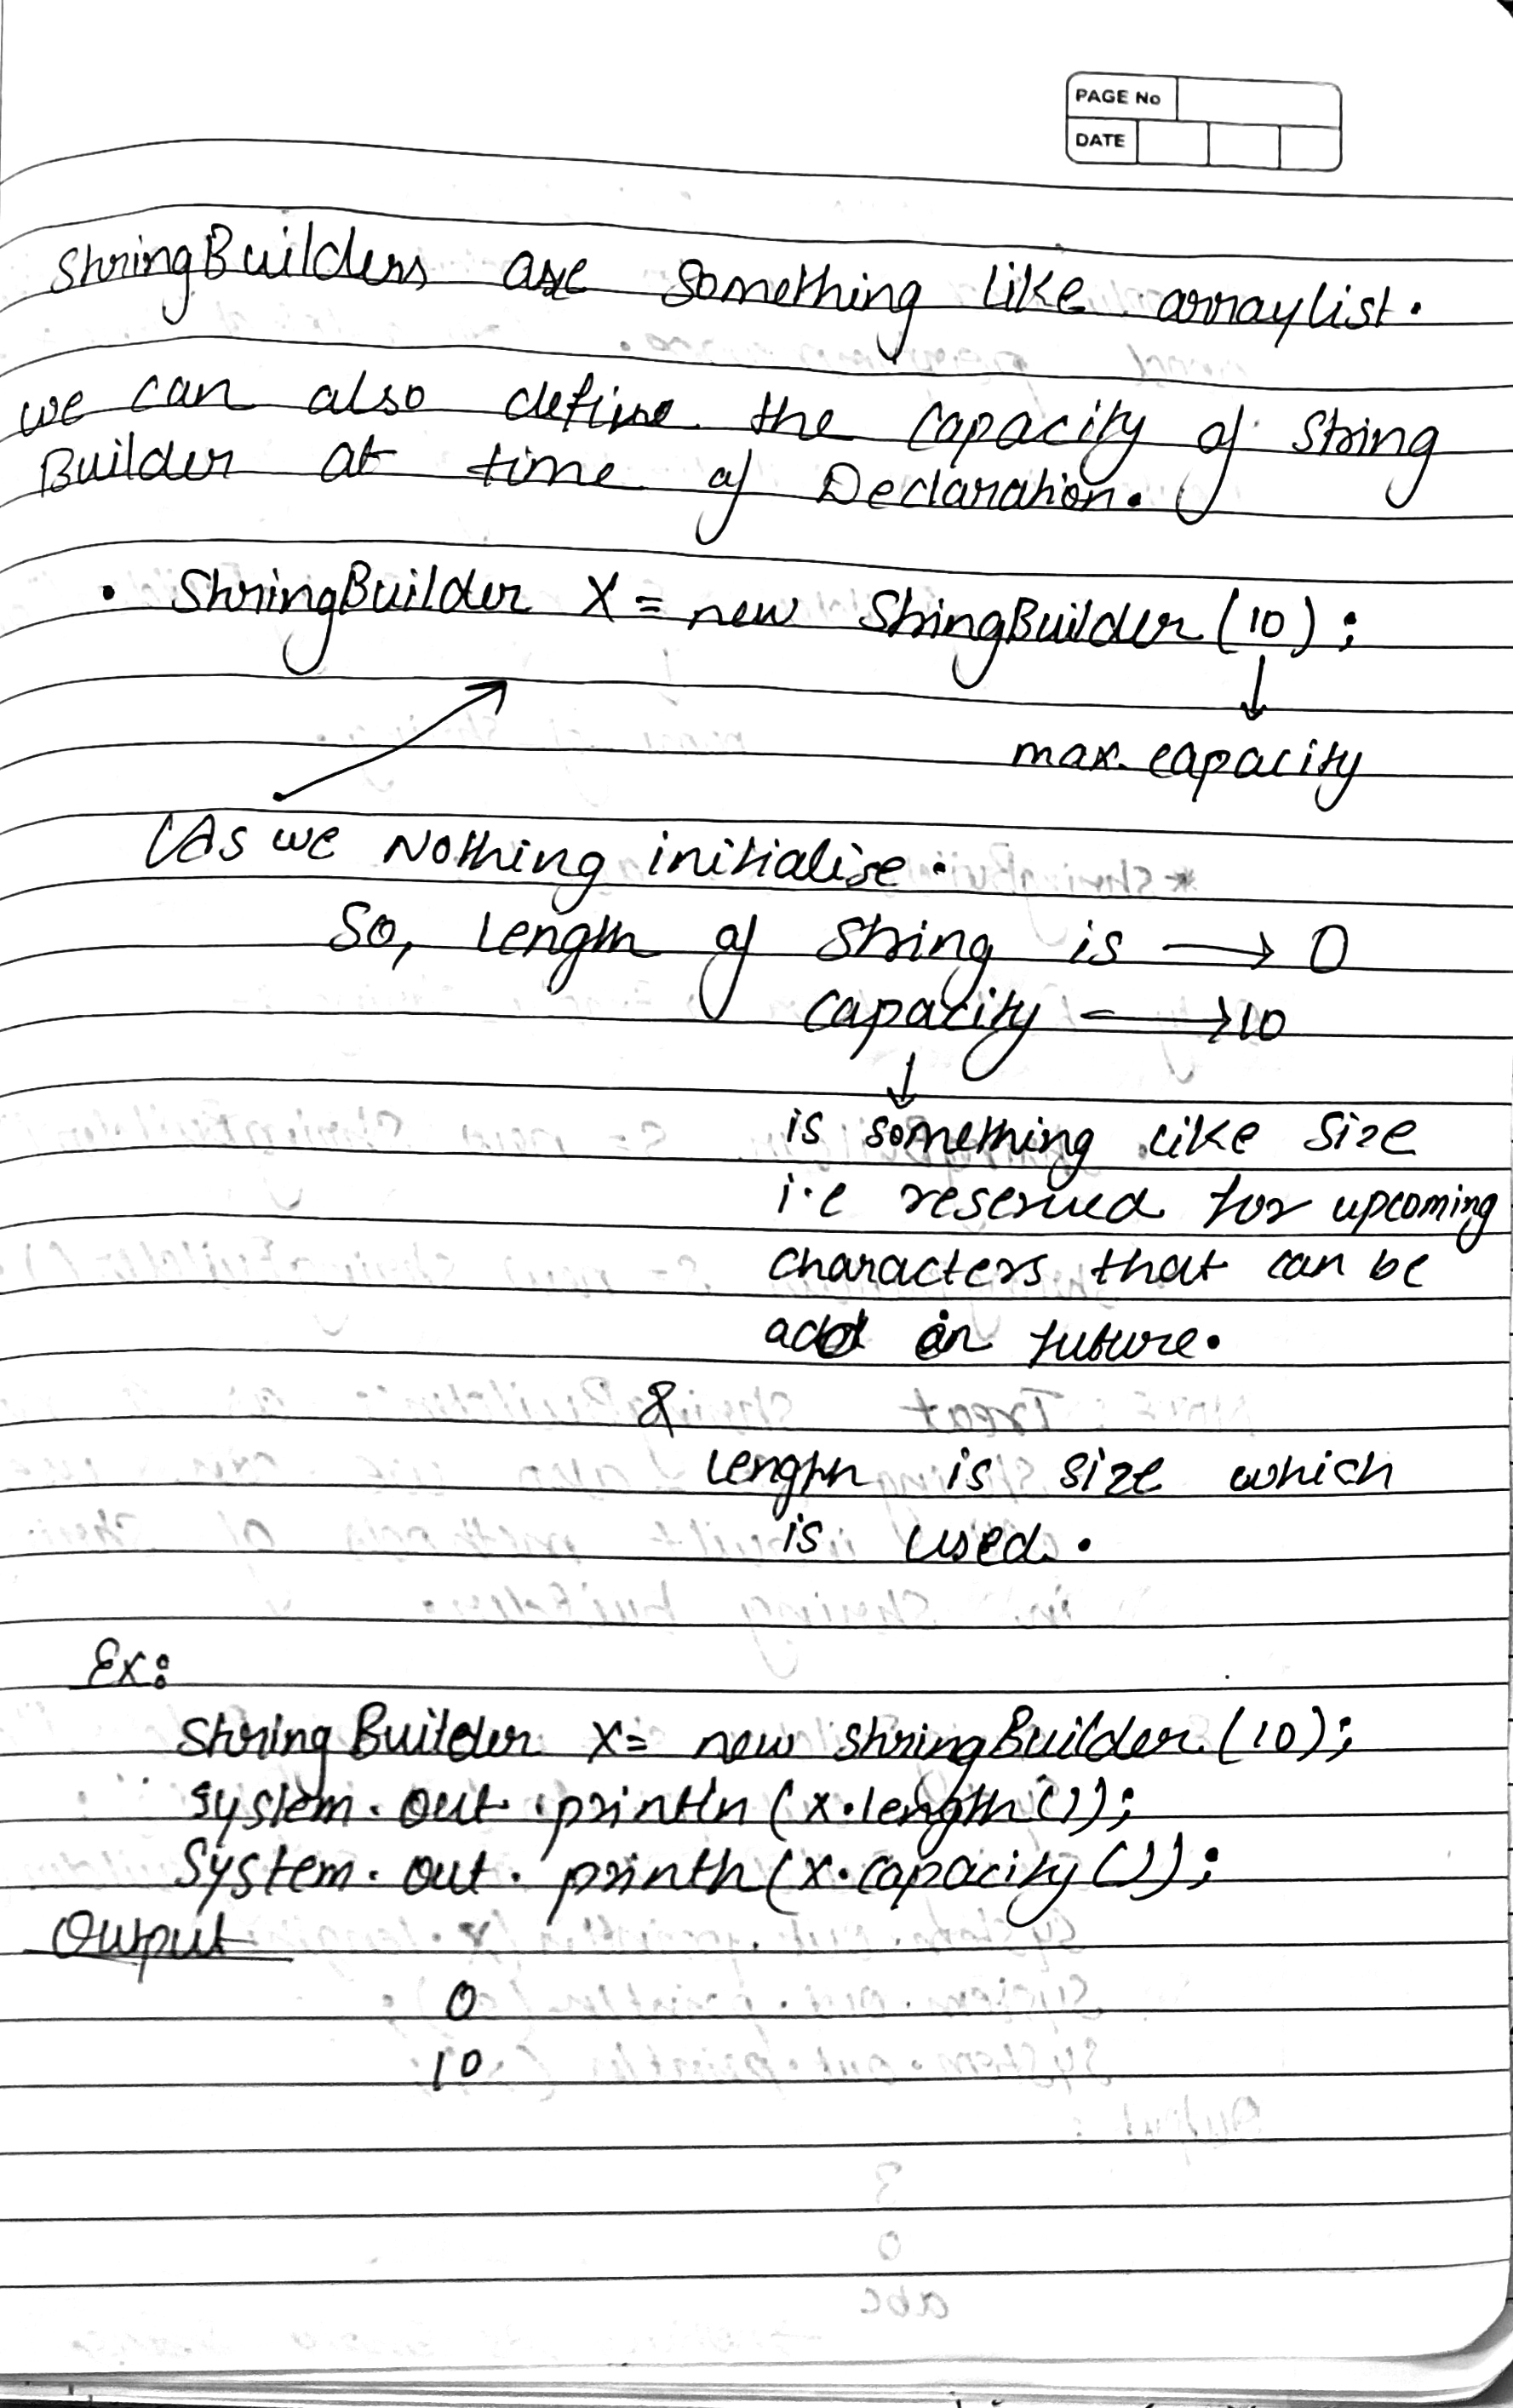 PAGE No
DATE
StringBuilders are something like arraylist.
we can also define the capacity of String
Builder at time of Declaration.
• StringBuilder X = new StringBuilder(10);
max. capacity
(As we Nothing initialise.
So, length of string is → 0
capacity → 10
is something like size
i.e reserved for upcoming
characters that can be
add in future.
&
length is size which
is used.
Ex:
StringBuilder X= new StringBuilder(10);
System.out.println(x.length());
System.out.println(x.capacity());
Output
0
10